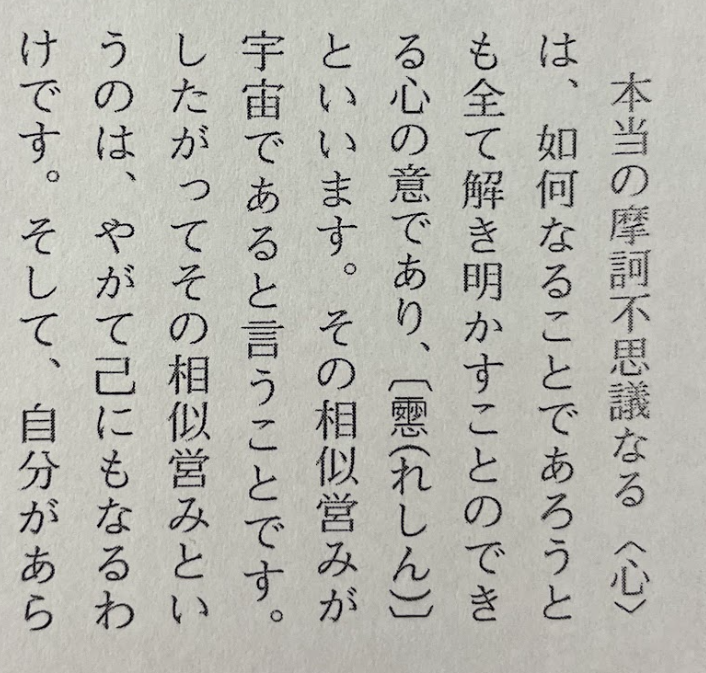 本当の摩訶不思議なる〈心〉
は、如何なることであろうと
も全て解き明かすことのでき
る心の意であり、〔(れしん)〕
といいます。その相似営みが
宇宙であると言うことです。
したがってその相似営みとい
うのは、やがて己にもなるわ
けです。そして、自分があら